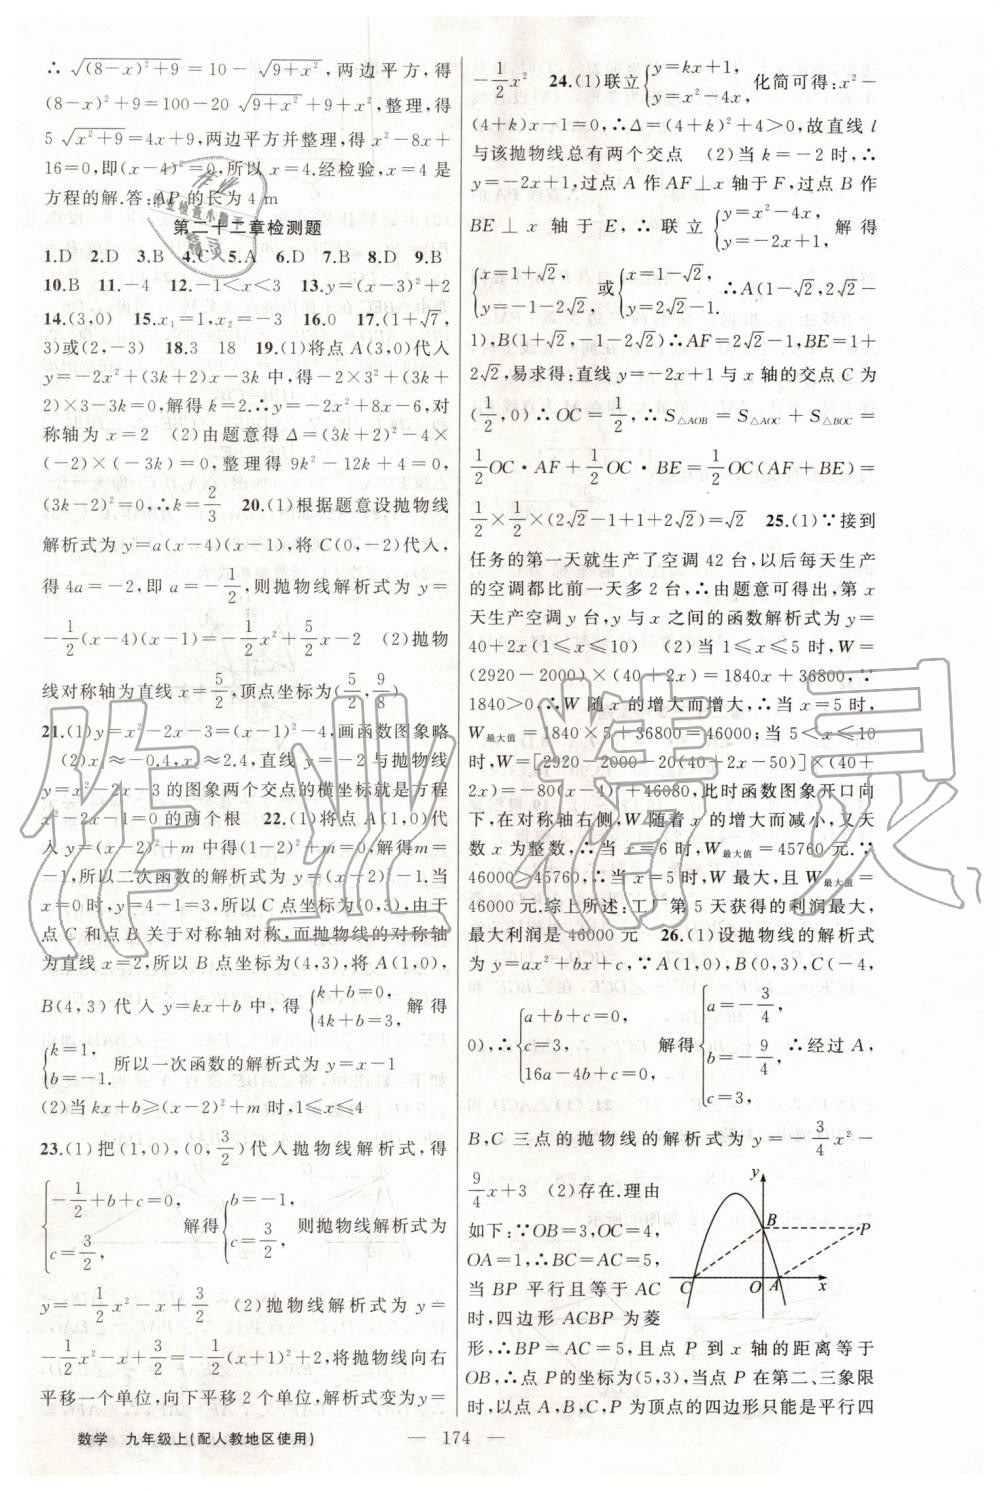 ∴ √((8−x)²+9) =10− √(9+x²),两边平方,得
(8−x)²+9=100−20 √(9+x²)+9+x²,整理,得
5 √(x²+9)=4x+9,两边平方并整理,得 x²−8x+
16=0,即(x−4)²=0,所以 x=4.经检验,x=4 是
方程的解.答:AP 的长为 4 m
第二十二章检测题
1.D 2.D 3.B 4.C 5.A 6.D 7.B 8.D 9.B
10.B 11.−4 12.−1<x<3 13.y=(x−3)²+2
14.(3,0) 15.x₁=1,x₂=−3 16.0 17.(1+√7,
3)或(2,−3) 18.3 18 19.(1)将点 A(3,0)代入
y=−2x²+(3k+2)x−3k 中,得−2×3²+(3k+
2)×3−3k=0,解得 k=2.∴y=−2x²+8x−6,对
称轴为 x=2 (2)由题意得 Δ=(3k+2)²−4×
(−2)×(−3k)=0,整理得 9k²−12k+4=0,
(3k−2)²=0,∴k=2/3 20.(1)根据题意设抛物线
解析式为 y=a(x−4)(x−1),将 C(0,−2)代入,
得 4a=−2,即 a=−1/2,则抛物线解析式为 y=
−1/2(x−4)(x−1)=−1/2x²+5/2x−2 (2)抛物
线对称轴为直线 x=5/2,顶点坐标为(5/2,9/8)
21.(1)y=x²−2x−3=(x−1)²−4,画函数图象略
(2)x≈−0.4,x≈2.4,直线 y=−2 与抛物线
y=x²−2x−3 的图象两个交点的横坐标就是方程
x²−2x−1=0 的两个根 22.(1)将点 A(1,0)代
入 y=(x−2)²+m 中得(1−2)²+m=0,解得m=
−1,所以二次函数的解析式为 y=(x−2)²−1,当
x=0时,y=4−1=3,所以 C 点坐标为(0,3),由于
点 C 和点 B 关于对称轴对称,而抛物线的对称轴
为直线 x=2,所以 B 点坐标为(4,3),将 A(1,0),
B(4,3)代入 y=kx+b 中,得{k+b=0, 4k+b=3, 解得
{k=1, b=−1. 所以一次函数的解析式为 y=x−1
(2)当 kx+b≥(x−2)²+m 时,1≤x≤4
23.(1)把(1,0),(0,3/2)代入抛物线解析式,得
{−1/2+b+c=0, c=3/2, 解得{b=−1, c=3/2, 则抛物线解析式为
y=−1/2x²−x+3/2 (2)抛物线解析式为 y=
−1/2x²−x+3/2=−1/2(x+1)²+2,将抛物线向右
平移一个单位,向下平移 2 个单位,解析式变为 y=
−1/2x² 24.(1)联立{y=kx+1, y=x²−4x, 化简可得:x²−
(4+k)x−1=0,∴Δ=(4+k)²+4>0,故直线 l
与该抛物线总有两个交点 (2)当 k=−2 时,∴
y=−2x+1,过点 A 作 AF⊥x 轴于 F,过点 B 作
BE⊥x 轴于 E,∴联立{y=x²−4x, y=−2x+1, 解得
{x=1+√2, y=−1−2√2 或{x=1−√2, y=2√2−1. ∴A(1−√2,2√2−
1),B(1+√2,−1−2√2)∴AF=2√2−1,BE=1+
2√2,易求得:直线 y=−2x+1 与 x 轴的交点 C 为
(1/2,0)∴OC=1/2,∴S△AOB=S△AOC+S△BOC=
1/2OC·AF+1/2OC·BE=1/2OC(AF+BE)=
1/2×1/2×(2√2−1+1+2√2)=√2 25.(1)∵接到
任务的第一天就生产了空调 42 台,以后每天生产
的空调都比前一天多 2 台,∴由题意可得出,第 x
天生产空调 y 台,y 与 x 之间的函数解析式为 y=
40+2x(1≤x≤10) (2)当 1≤x≤5 时,W=
(2920−2000)×(40+2x)=1840x+36800,∵
1840>0,∴W 随 x 的增大而增大,∴当 x=5 时,
W最大值=1840×5+36800=46000;当 5<x≤10
时,W=[2920−2000−20(40+2x−50)]×(40+
2x)=−80(x−4)²+46080,此时函数图象开口向
下,在对称轴右侧,W 随着 x 的增大而减小,又天
数 x 为整数,∴当 x=6 时,W最大值=45760 元.∵
46000>45760,∴当 x=5 时,W 最大,且 W最大值=
46000元.综上所述:工厂第 5 天获得的利润最大,
最大利润是 46000 元 26.(1)设抛物线的解析式
为 y=ax²+bx+c,∵A(1,0),B(0,3),C(−4,
0),∴{a+b+c=0, c=3, 16a−4b+c=0, 解得{a=−3/4, b=−9/4, c=3, ∴经过 A,
B,C 三点的抛物线的解析式为 y=−3/4x²−
9/4x+3 (2)存在.理由
如下:∵OB=3,OC=4,
OA=1,∴BC=AC=5,
当 BP 平行且等于 AC
时,四边形 ACBP 为菱
形,∴BP=AC=5,且点 P 到 x 轴的距离等于
OB,∴点 P 的坐标为(5,3),当点 P 在第二、三象限
时,以点 A,B,C,P 为顶点的四边形只能是平行四
y
B
P
C
O
A
x
数学 九年级上(配人教地区使用)
— 174 —
作业精灵